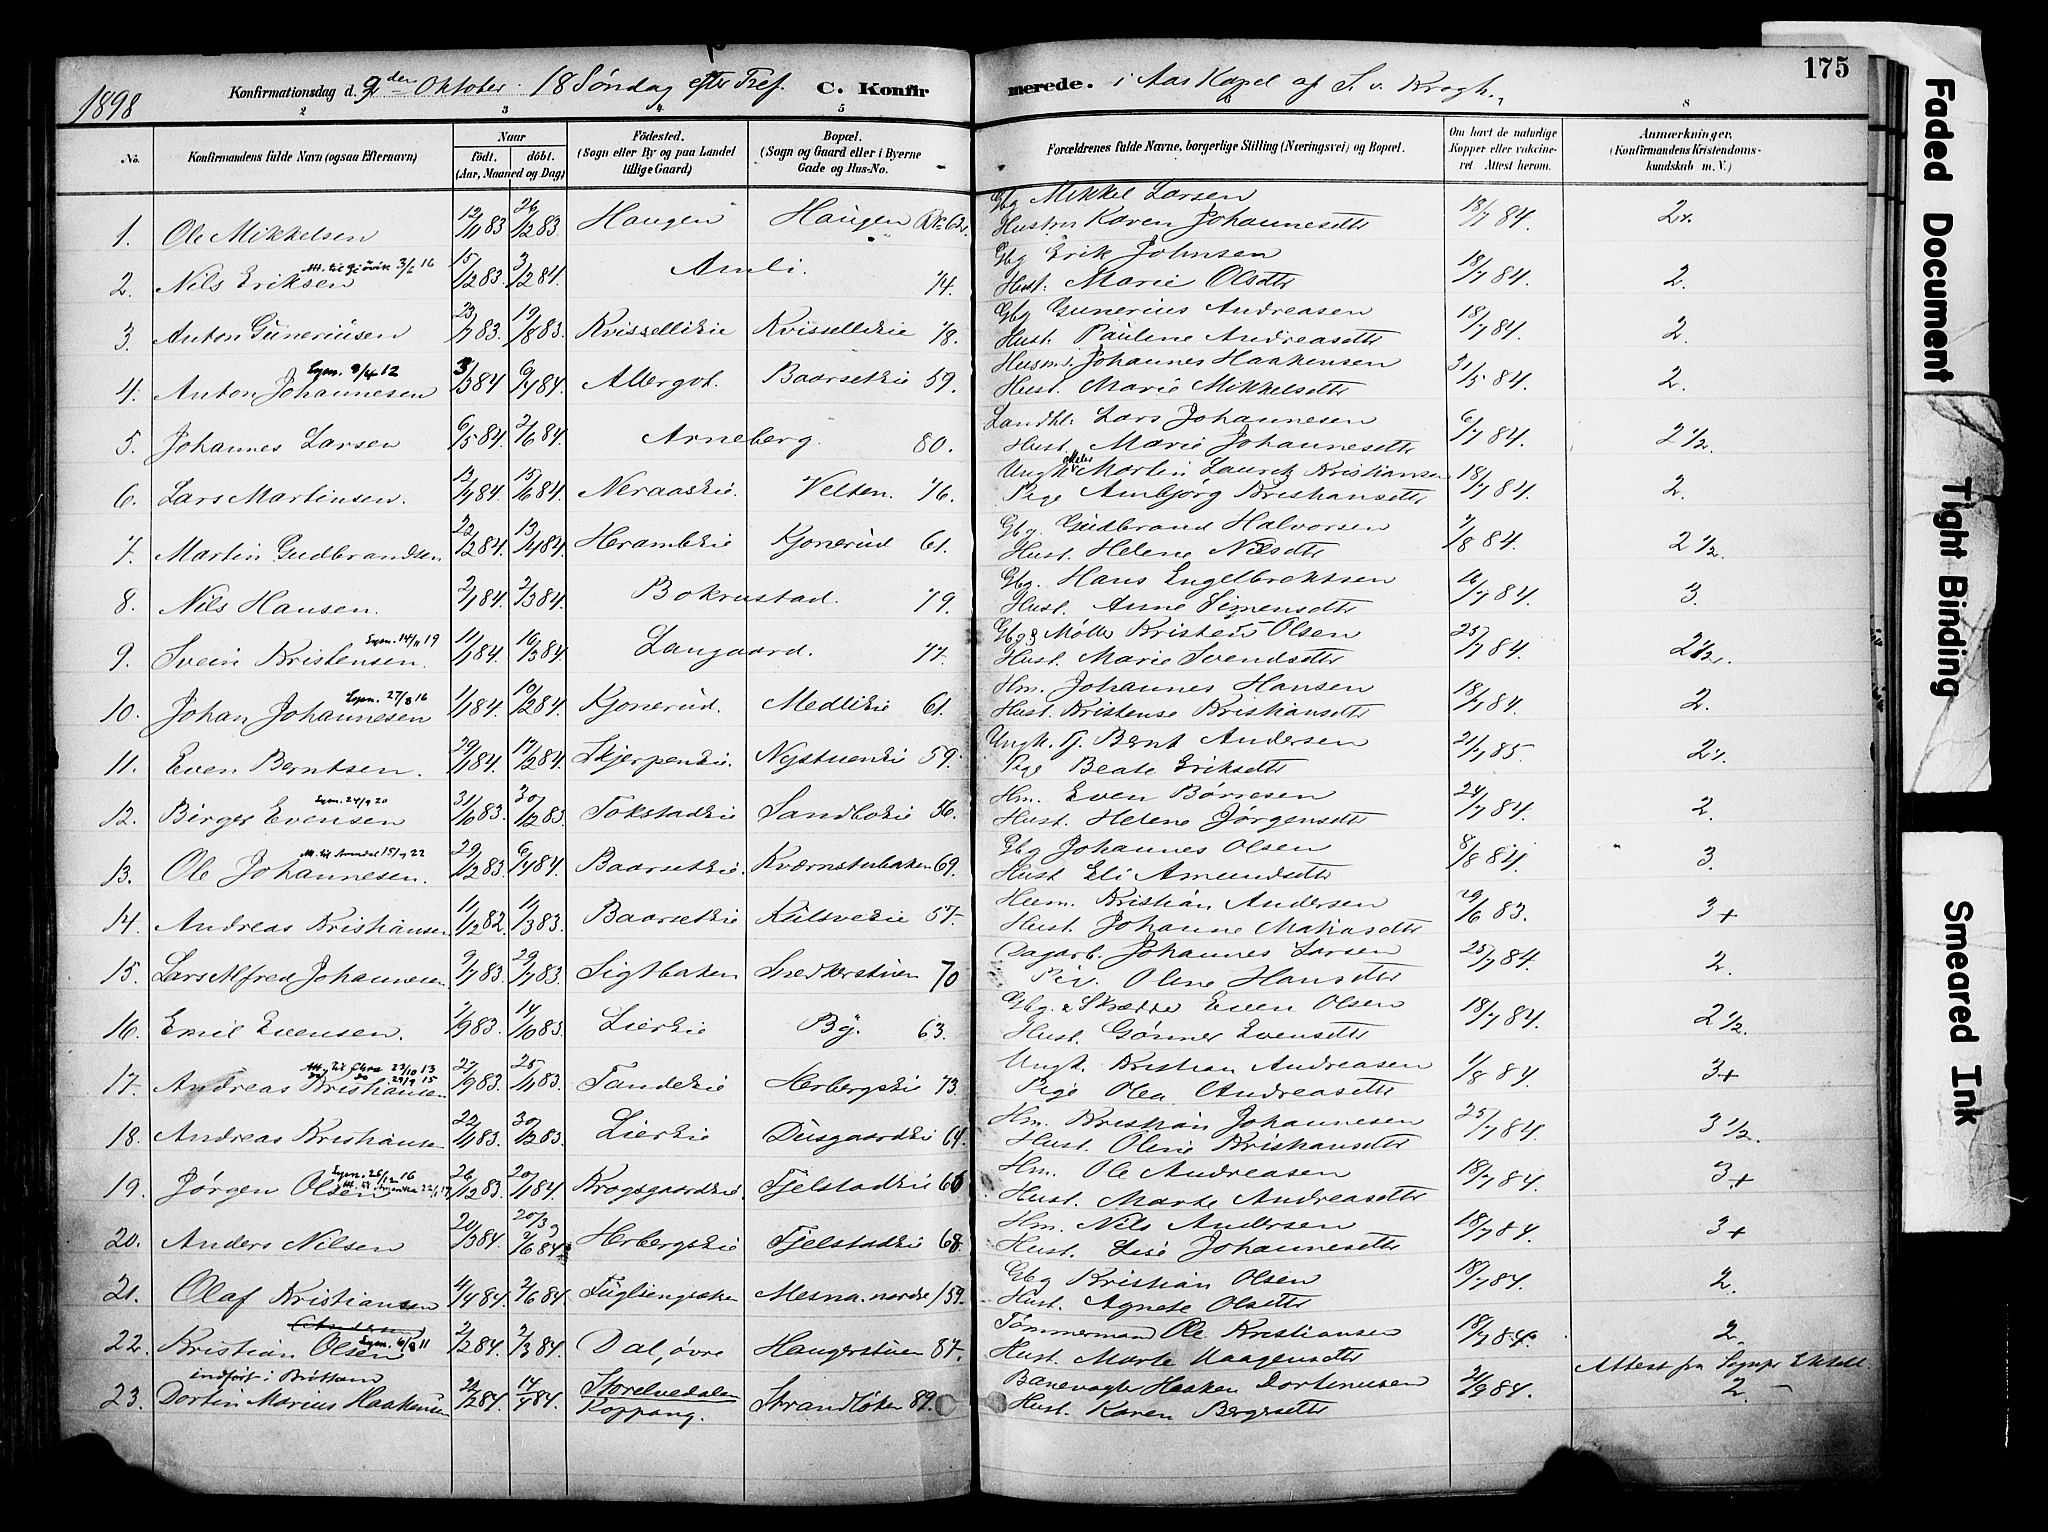 175
1898 Konfirmationsdag d. 9den Oktober 18 Søndag efter Tref. C. Konfirmerede. i Aas Kapel af S. v. Krogh.
2 3 4 5 8
No. Konfirmandens fulde Navn (ogsaa Efternavn) Naar født. døbt. (Aar, Maaned og Dag) Fødested. (Sogn eller By og paa Landet tillige Gaard) Bopæl. (Sogn og Gaard eller i Byerne Gade og Hus-No. Forældrenes fulde Navne, borgerlige Stilling (Næringsvei) og Bopæl. Om havt de naturlige Kopper eller vakcineret. Attest herom. Anmærkninger. (Konfirmandens Kristendomskundskab m. V.)
1. Ole Mikkelsen 12/11 83 26/12 83 Haugen Haugen Gbg Mikkel Larsen 18/7 84 2
Hustru Karen Johannesdtr
2. Nils Eriksen Att. til Gjøvik 3/6 16 15/12 83 3/2 84. Amli. 74. Gbg Erik Johnsen 18/7 84. 2.
Hust. Marie Olsdtr
3. Anton Guneriusen 23/7 83. 19/8 83. Kvisselleie Kvisselleie 78. Gbg Gunerius Andreasen 18/7 84. 2.
Hust. Pauline Andreasdtr
4. Anton Johannesen Lysn. 9/4 12 3/3 84 6/4 84. Allergot. Baarseteie 59. Husm. Johannes Haakensen 31/5 84. 2.
Hust. Marie Mikkelsdtr
5. Johannes Larsen 6/5 84. 2/6 84. Arneberg. 80. Landh. Lars Johannesen 6/7 84. 2 1/2.
Hust. Marie Johannesdtr
6. Lars Martinsen. 13/4 84. 15/6 84. Neraaseie. Velten. 76. Ungk. Martin Lauretz Kristiansen 18/7 84. 2.
Pige Ambjørg Kristiansdtr
7. Martin Gudbrandsen 22/2 84. 13/4 84. Herambeie Kjonerud 61. Gbg Gudbrand Halvorsen 7/8 84. 2 1/2.
Hust. Helene Nilsdtr
8. Nils Hansen. 2/1 84. 2/3 84. Bokrustad. 79. Gbg. Hans Engelbrektsen 16/7 84. 3.
Hust. Anne Simensdtr
9. Svein Kristensen. Lysn. 14/11 19 11/1 84. 16/3 84. Langaard. 77. Gbg & Møller Kristen Olsen 25/7 84. 2 1/2.
Hust. Marie Svendsdtr
10. Johan Johannesen Lysn. 27/8 16 1/1 84. 10/2 84. Kjonerud. Medlieie 61. Hm. Johannes Hansen 18/7 84. 2.
Hust. Kristense Kristiansdtr
11. Even Berntsen. 29/1 84. 17/2 84. Skjerpeneie. Nystueneie 59. Ungk. Tj. Bernt Andersen 21/7 85. 2
Pige Beate Eriksdtr
12. Birger Evensen Lysn. 24/9 20 31/10 83. 30/12 83. Tokstadeie Sandbokeie 56. Hm. Even Børresen 24/7 84. 2.
Hust. Helene Jørgensdtr
13. Ole Johannesen. Att. til Arendal 15/7 22 29/12 83. 6/4 84. Baarseteie. Kværnstubaken 69. Gbg Johannes Olsen 8/8 84. 3.
Hust. Eli Amundsdtr
14. Andreas Kristiansen 11/12 82. 11/3 83. Baarseteie Kulsveeie 57. Husm. Kristian Andersen 29/6 83. 3+
Hust. Johanne Matiasdtr
15. Lars Alfred Johannesen 9/7 83. 29/7 83. Sigtbaken Snedkerstuen 70 Dagarb. Johannes Larsen 25/7 84. 2.
Pige. Oline Hansdtr
16. Emil Evensen. 7/9 83. 14/10 83. Liereie By. 63. Gbg. & Skrædder Even Olsen 18/7 84. 2 1/2.
Hust. Gønner Evensdtr
17. Andreas Kristiansen Att. til Chra 23/10 13 do do 29/9 15 27/9 83. 25/11 83. Tandeeie Herbergseie 73. Ungk. Kristian Andreasen 1/8 84. 3+
Pige Olea Andreasdtr
18. Andreas Kristiansen 22/11 83. 30/12 83. Liereie Disgaardeie 64. Hm. Kristian Johannesen 25/7 84. 3 1/2.
Hust. Oline Kristiansdtr
19. Jørgen Olsen Lysn. 25/12 16 26/12 83. 20/1 84. Krogsgaardeie. Fjelstadeie 66 Hm. Ole Andreasen 18/7 84. 3+
Hust. Marte Andreasdtr
20. Anders Nilsen 20/3 84. 2/6 84 Herbergseie Fjelstadeie 68. Hm. Nils Andersen 18/7 84. 3+
Hust. Lise Johannesdtr
21. Olaf Kristiansen 4/4 84. 2/6 84. Fuglsengeaken Mesna nordre 159. Gbg Kristian Olsen 18/7 84. 2.
Hust. Agnete Olsdtr
22. Kristian Olsen Lysn. 6/8 11 2/2 84. 2/3 84. Dal, øvre Haugerstuen 87. Tømmermand Ole Kristiansen 18/7 84. 2.
Hust. Marte Haagensdtr
23. Dortin Marius Haakensen 2/2 84. 14/4 84. Storelvedalen Koppang. Strandløken 89. Banevogter Haaken Dortinusen 21/9 84. 2.
Hust. Karen Bergersdtr
Faded Document
Tight Binding
Smeared Ink